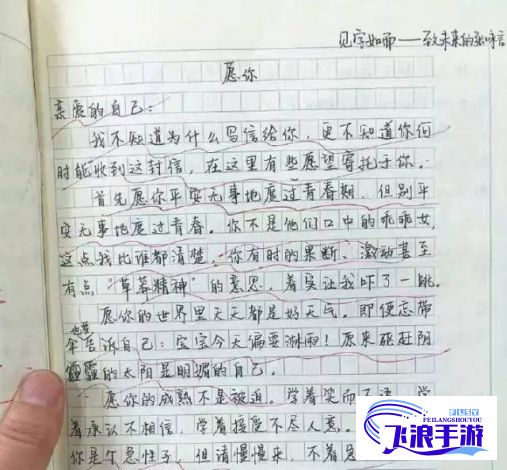 见字如面——致未来的张咏言
愿你
亲爱的自己:
我不知道为什么写信给你,更不知道你何
时能收到这封信,在这里有些愿望寄托于你.
首先愿你平安无事地度过青春期,但别平
安无事地度过青春。你不是他们口中的乖乖女,
这点我比谁都清楚。你有时的果断、激动甚至
有点“草莽精神”的意思,着实让我吓了一跳。
愿你的世界里天天都是好天气。即便忘带
也要
伞告诉自己:宝宝今天偏要淋雨!原来驱赶阴
霾的太阳是明媚的自己。
愿你的成熟不是被迫。学着笑而不语,学
着承认不相信,学着接受不尽人意。
你是个急性子,但请慢慢来,不着急
飞浪手游
FEILANGSHOUYOU